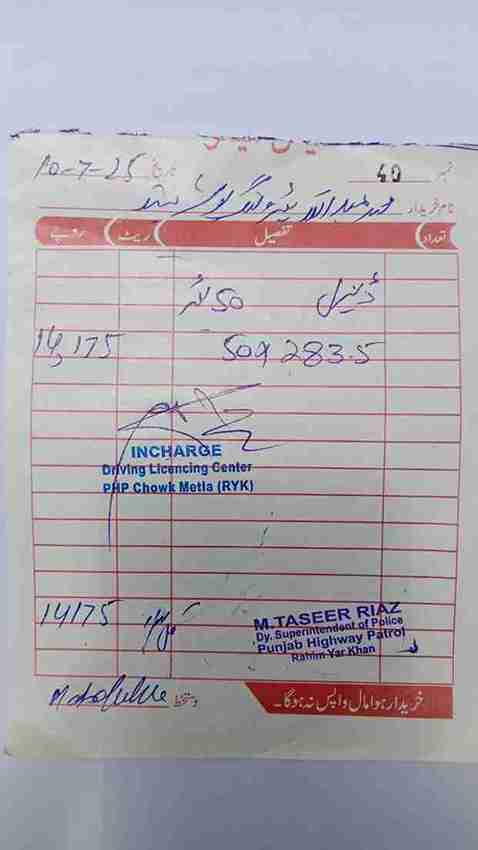 نمبر 40 تاریخ 10-7-25
نام خریدار
تعداد تفصیل ریٹ روپے
ڈیزل 50 لٹر
50x 283.5 14,175
INCHARGE
Driving Licencing Center
PHP Chowk Metla (RYK)
14175
M.TASEER RIAZ
Dy. Superintendent of Police
Punjab Highway Patrol
Rahim Yar Khan
دستخط
خریدار ہوا مال واپس نہ ہوگا۔